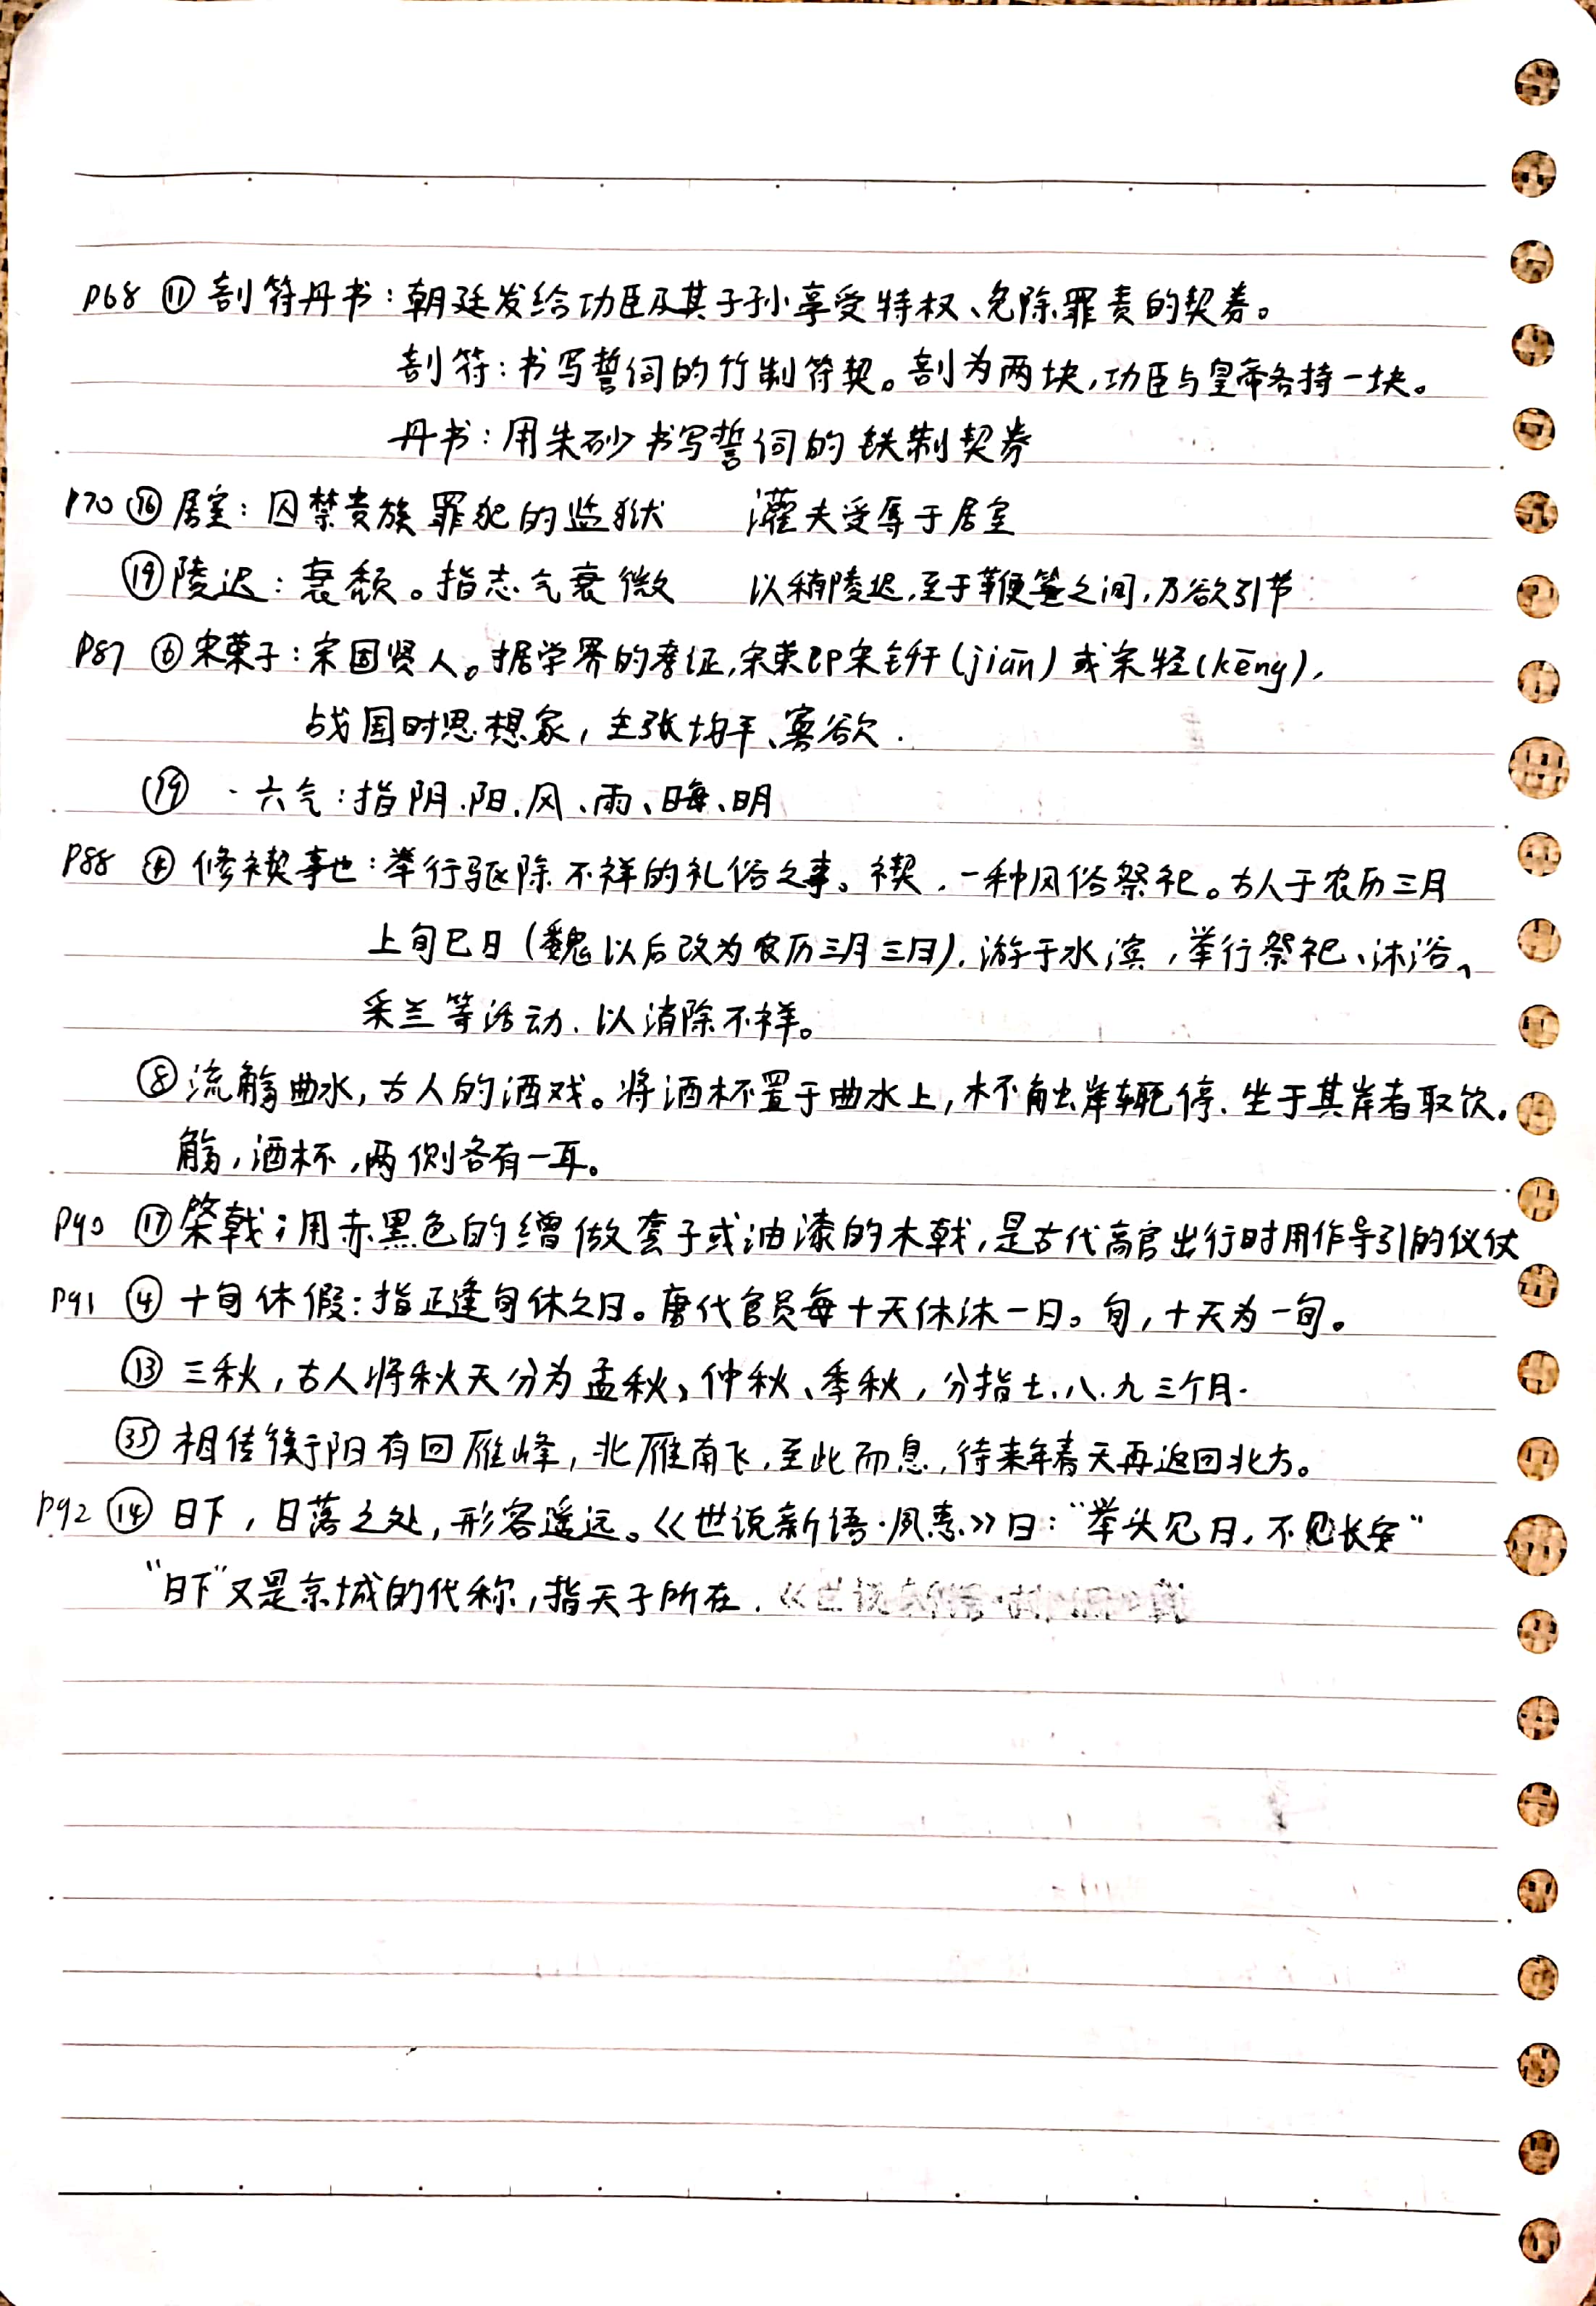 P68 ⑪ 剖符丹书：朝廷发给功臣及其子孙享受特权、免除罪责的契券。
剖符：书写誓词的竹制符契。剖为两块，功臣与皇帝各持一块。
丹书：用朱砂书写誓词的铁制契券
P70 ⑯ 居室：囚禁贵族罪犯的监狱 灌夫受辱于居室
⑲ 陵迟：衰颓。指志气衰微 以稍陵迟，至于鞭箠之间，乃欲引节
P87 ⑥ 宋荣子：宋国贤人。据学界的考证，宋荣即宋钘(jiān)或宋牼(kēng)，
战国时思想家，主张均平、寡欲．
⑲ ·六气：指阴、阳、风、雨、晦、明
P88 ④ 修禊事也：举行驱除不祥的礼俗之事。禊，一种风俗祭祀。古人于农历三月
上旬巳日（魏以后改为农历三月三日），游于水滨，举行祭祀、沐浴、
采兰等活动，以消除不祥。
⑧ 流觞曲水，古人的酒戏。将酒杯置于曲水上，杯触岸辄停、坐于其岸者取饮。
觞，酒杯，两侧各有一耳。
P90 ⑰ 棨戟；用赤黑色的缯做套子或油漆的木戟，是古代高官出行时用作导引的仪仗
P91 ④ 十旬休假：指正逢旬休之日。唐代官员每十天休沐一日。旬，十天为一旬。
⑬ 三秋，古人将秋天分为孟秋、仲秋、季秋，分指七、八、九三个月．
㉟ 相传衡阳有回雁峰，北雁南飞，至此而息，待来年春天再返回北方。
P92 ⑭ 日下，日落之处，形容遥远。《世说新语·夙惠》曰：“举头见日，不见长安”
“日下”又是京城的代称，指天子所在．